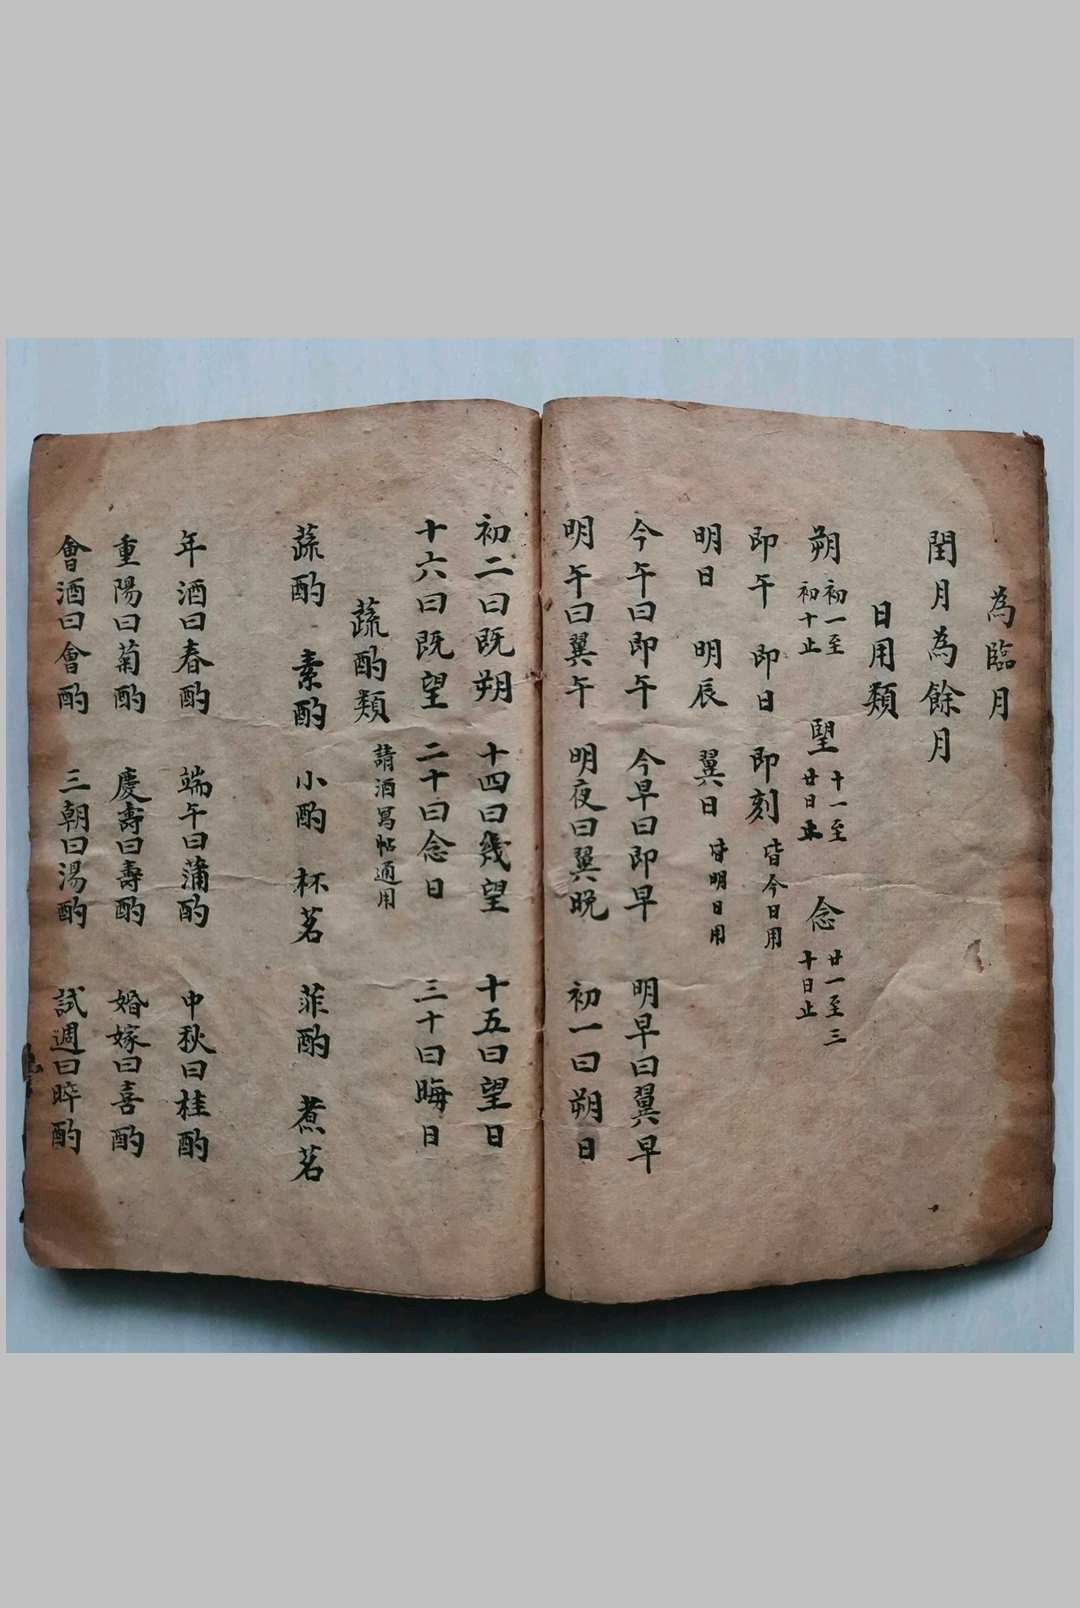 為臨月
閏月為餘月
日用類
朔 初一至初十止 望 十一至廿日止 念 廿一至三十日止
即午 即日 即刻 皆今日用
明日 明辰 翼日 皆明日用
今午曰即午 今早曰即早 明早曰翼早
明午曰翼午 明夜曰翼晚 初一曰朔日
初二曰既朔 十四曰幾望 十五曰望日
十六曰既望 二十曰念日 三十曰晦日
蔬酌類 請酒寫帖通用
蔬酌 素酌 小酌 杯茗 菲酌 煮茗
年酒曰春酌 端午曰蒲酌 中秋曰桂酌
重陽曰菊酌 慶壽曰壽酌 婚嫁曰喜酌
會酒曰會酌 三朝曰湯酌 試週曰晬酌